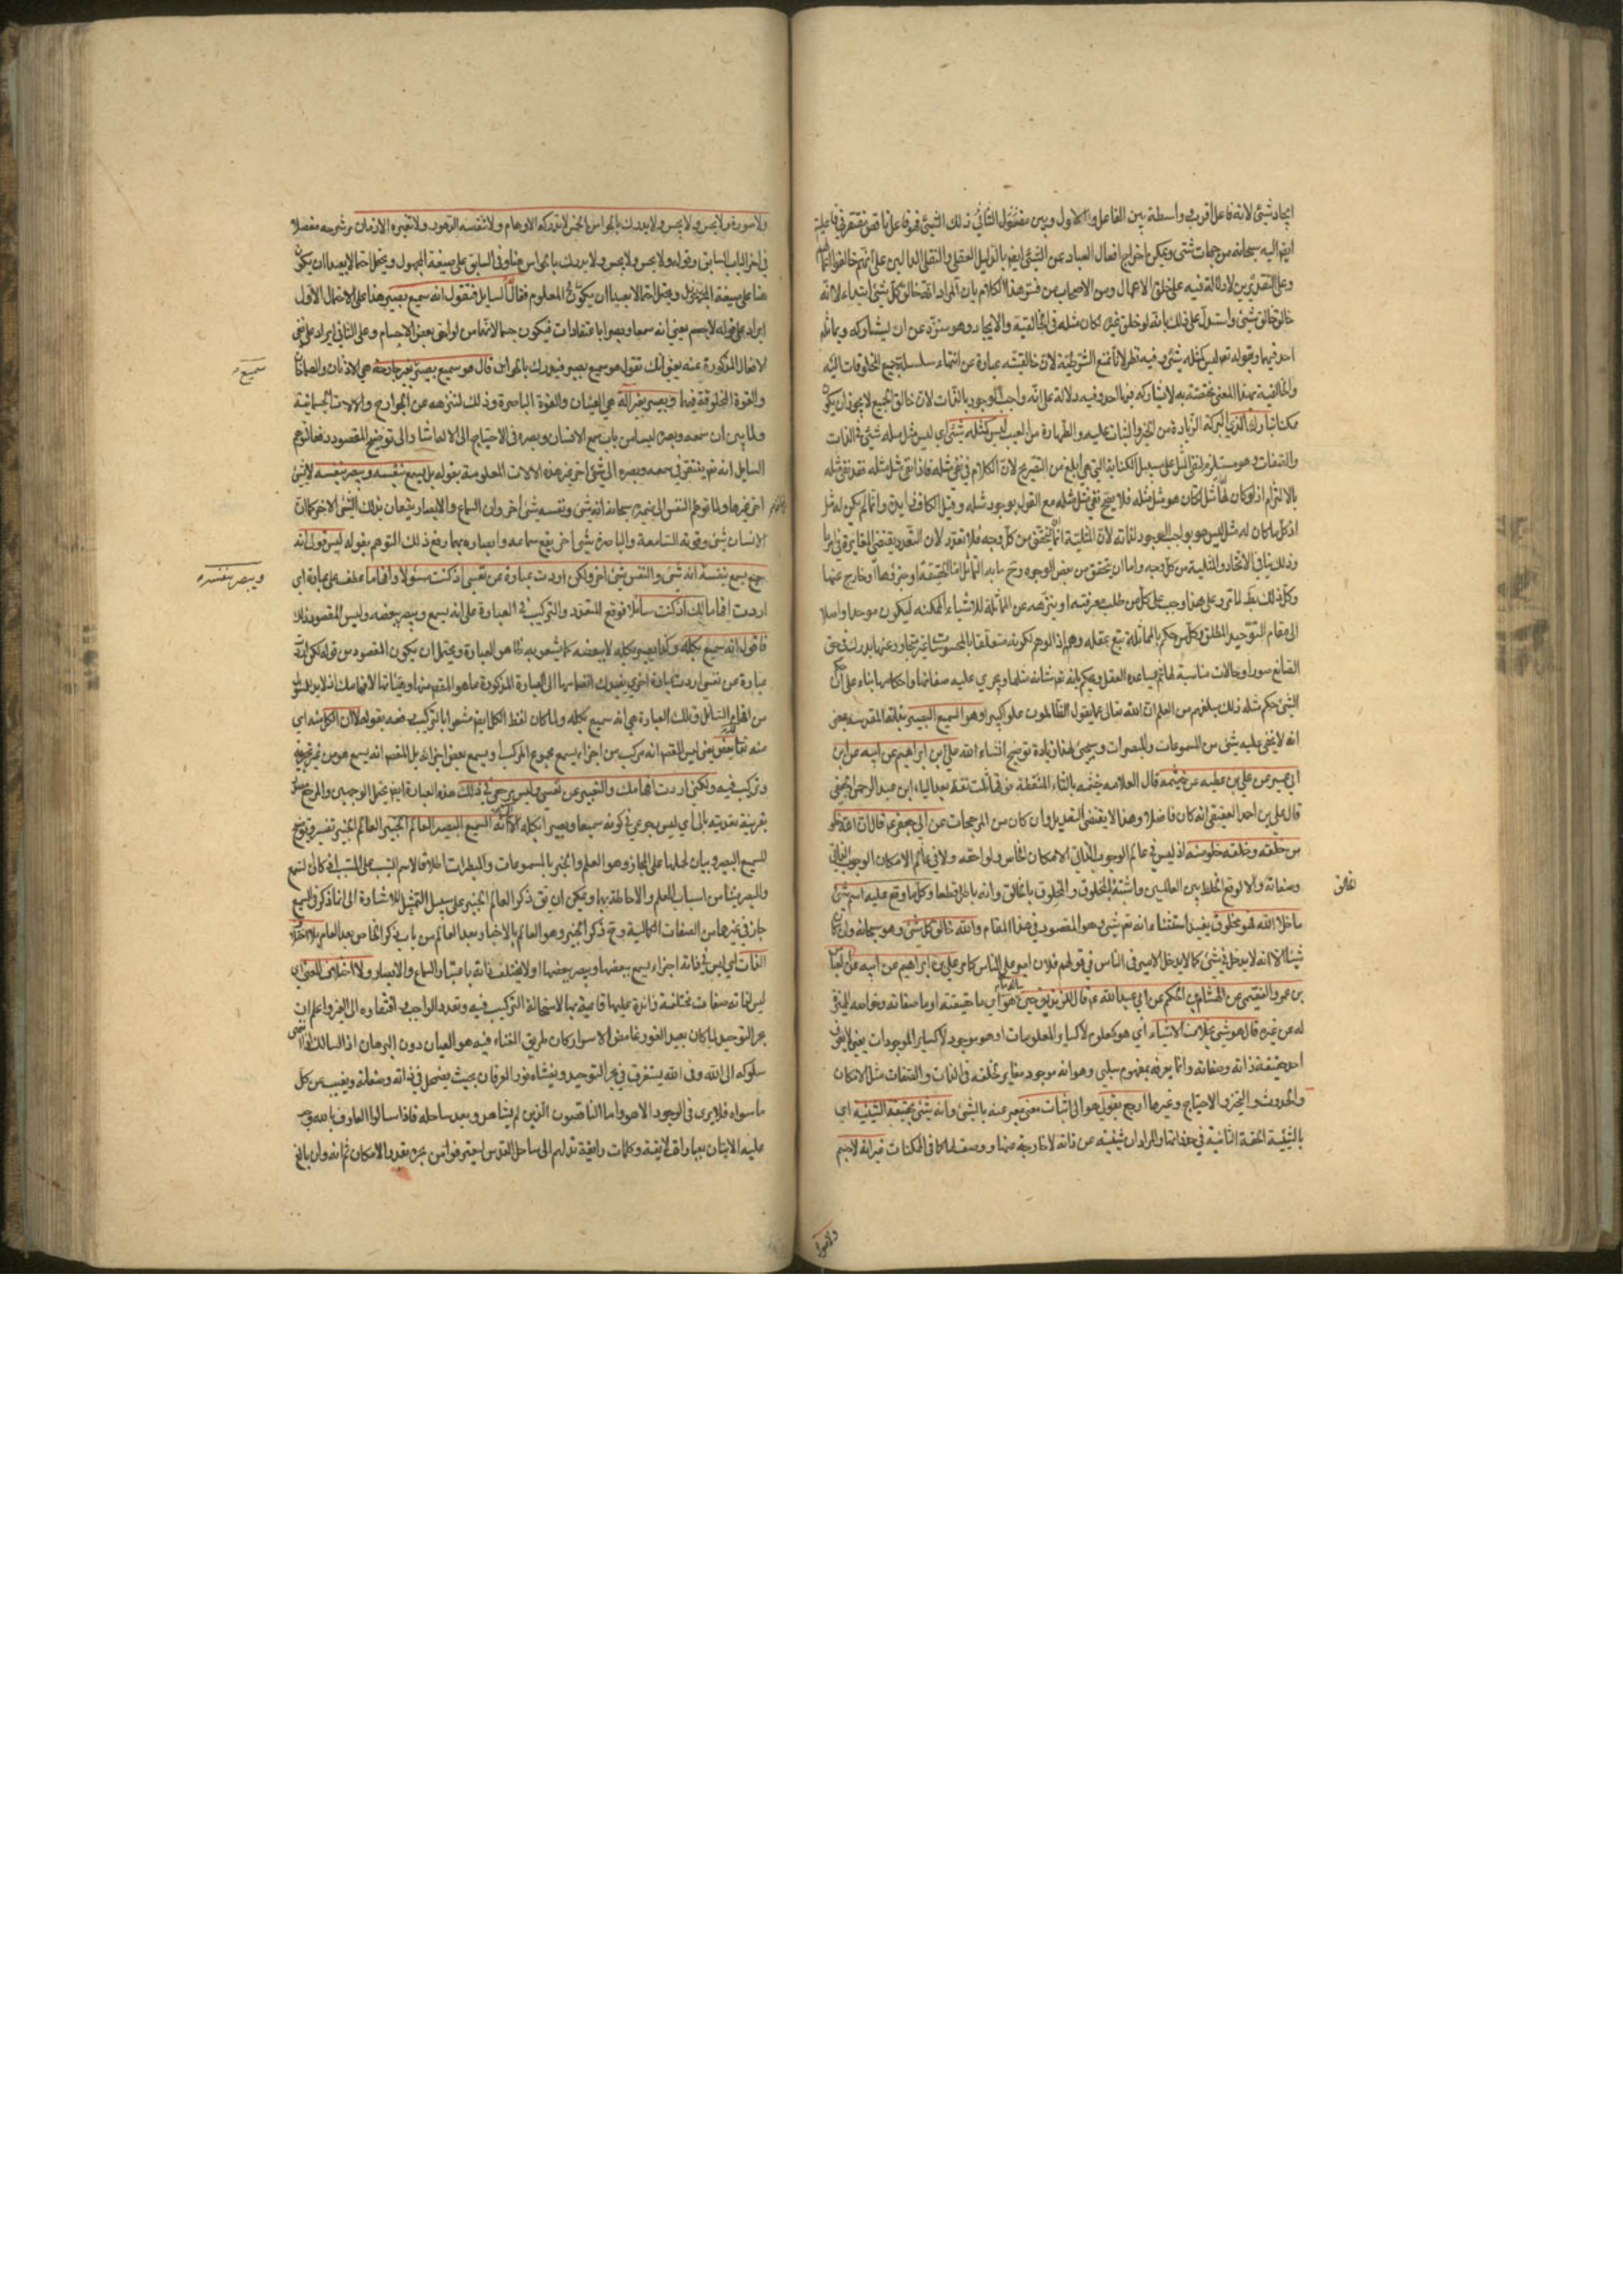 ايجاد شئ لانه فاعل اقرب واسطة بين الفاعل الاول وبين مفعول الثاني ذلك الشئ فهو فاعل ناقص مفتقر في فاعلية
ايضا اليه سبحانه من جهات شتى ويمكن اخراج افعال العباد عن الشئ ايضا بالدليل العقلي والنقلي الدالين على انهم خالقوا
وعلى التقديرين لا دلالة فيه على خلق الاعمال ومن الاصحاب من فسر هذا الكلام بان المراد انه خالق كل شئ ابتداء لا انه
خالق خالق شئ واستدل على ذلك بانه لو خلق غيره لكان مثله في الخالقية والايجاد وهو منزه عن ان يشاركه ويماثله
احد فيها وبقوله تع ليس كمثله شئ وفيه نظر لانا نمنع الشرطية لان خالقيته عبارة عن انتهاء سلسلة جميع المخلوقات اليه
والخالقية بهذا المعنى مختصة به لا يشاركه فيها احد وفيه دلالة على انه واجب الوجود بالذات لان خالق الجميع لا يجوز ان يكون
ممكنا تبارك الذي البركة الزيادة من الخير والثبات عليه والطهارة من العيب ليس كمثله شئ اي ليس مثل مثله شئ في الذات
والصفات وهو مستلزم لنفي المثل على سبيل الكناية التي هي ابلغ من التصريح لان الكلام في نفي مثله فاذا نفى مثل مثله فقد نفى مثله
بالالتزام اذ لو كان له مثل لكان هو مثل مثله فلا يصح نفي مثل مثله مع القول بوجود مثله وقيل الكاف زايدة وانما لم يكن له مثل
اذ كل ما كان له مثل ليس هو بواجب الوجود لذاته لان المثلية اما ان يتحقق من كل وجه فلا تعدد لان التعدد يقتضي المغايرة في امر ما
وذلك ينافي الاتحاد والمثلية من كل وجه واما ان يتحقق من بعض الوجوه وح ما به التماثل اما الحقيقة او جزؤها او خارج عنها
وكل ذلك بط لما تقرر على هذا وجب على كل من طلب معرفته ان ينزهه عن المماثلة للاشياء الممكنة ليكون موحدا واصلا
الى مقام التوحيد المطلق وكل من حكم بالمماثلة يتبع بعقله وهم اذ الوهم لكونه متعلقا بالمحسوسات غير متجاوز عنها يدرك في حق
الصانع صورا وحالات مناسبة لها ثم يساعده العقل ويحكم بانه تع شانه مثلها ويجري عليه صفاتها واحكامها بناء على ان حكم
الشئ حكم مثله ذلك مبلغهم من العلم ان الله تعالى عما يقول الظالمون علوا كبيرا وهو السميع البصير بذاته المقدسة يعني
انه لا يخفى عليه شئ من المسموعات والمبصرات وسيجئ لهذا زيادة توضيح انشاء الله علي بن ابراهيم عن ابيه عن ابن
ابي عمير عن علي بن عطية عن خيثمة قال العلامة خيثمة بالثاء المنقطة من فوقها ثلث نقط بعد الياء ابن عبد الرحمن الجعفي
قال علي بن احمد العقيقي انه كان فاضلا وهذا لا يقتضي التعديل وان كان من المرجحات عن ابي جعفر ع قال ان الله خلو
من خلقه وخلقه خلو منه اذ ليس في عالم الوجوب الذاتي الامكان الخاص ولواحقه ولا في عالم الامكان الوجوب الذاتي
وصفاته والا لوقع الخلط بين العالمين واشتبه المخلوق والخالق بالخالق وانه باطل قطعا وكل ما وقع عليه اسم شئ
الخالق
ما خلا الله فهو مخلوق يفيد استثناءه انه تع شئ وهو المقصود في هذا المقام والله خالق كل شئ وهو سبحانه وان كان
شيئا الا انه لا يدخل في شئ كما لا يدخل الامير في الناس في قولهم فلان امير على الناس كما مر علي بن ابراهيم عن ابيه عن العباس
بن عمرو الفقيمي عن هشام بن الحكم عن ابي عبد الله ع قال للزنديق حين سأله ما هو اي ما حقيقته او ما صفاته وخواصه المميزة
له عن غيره قال هو شئ بخلاف الاشياء اي هو كمعلوم لا كساير المعلومات او هو موجود لا كساير الموجودات يعني لا يعرف
احد حقيقة ذاته وصفاته وانما يعرفه بمفهوم سلبي وهو انه موجود مغاير لخلقه في الذات والصفات مثل الامكان
والحدوث والتحيز والاحتياج وغيرها ارجع بقولي هو الى اثبات معنى يعبر عنه بالشئ وانه شئ بحقيقة الشيئية اي
بالشيئية الحقة الثابتة في حد ذاتها والمراد ان شيئيته عين ذاته لا خارجة عنها ووصف لها كما في الممكنات غير انه لا جسم
ولا صورة
ولا صورة ولا يحس ولا يجس ولا يدرك بالحواس الخمس لا تدركه الاوهام ولا تنقصه الدهور ولا تغيره الازمان مر شرحه مفصلا
في اخر الباب السابق وقوله ولا يحس ولا يجس ولا يدرك بالحواس هنا وفي السابق على صيغة المجهول ويحتمل احتمالا بعيدا ان يكون
هنا على صيغة المجهول ويحتمل احتمالا بعيدا ان يكون المعلوم فقال السايل فتقول انه سميع بصير هذا على الاحتمال الاول
ايراد على قوله لا جسم يعني انه سمعا وبصرا باعتقادات فيكون جسما لانهما من لواحق بعض الاجسام وعلى الثاني ايراد على نفي
الافعال المذكورة عنه يعني انك تقول هو سميع بصير فيدرك بالحواس قال هو سميع بصير بغير جارحة هي الاذنان والصماخان
سميع
والقوة المخلوقة فيها وبصير بغير آلة هي العينان والقوة الباصرة وذلك لتنزهه عن الجوارح والالات الجسمانية
ولما بين ان سمعه وبصره ليسا من باب سمع الانسان وبصره في الاحتياج الى الالات اشار الى توضيح المقصود دفعا لتوهم
السايل انه تع يفتقر في سمعه وبصره الى شئ اخر غير هذه الالات المعلومة بقوله بل يسمع بنفسه ويبصر بنفسه لا بشئ
اخر غيرها ولما توهم النفس الى ضميره سبحانه انه شئ ونفسه شئ اخر وان السماع والابصار يقعان بذلك الشئ الاخر كما ان
الانسان شئ وقوته السامعة والباصرة شئ اخر يقع سماعه وابصاره بهما دفع ذلك التوهم بقوله ليس قولي انه
سميع يسمع بنفسه انه شئ والنفس شئ اخر ولكن اردت عبارة عن نفسي اذ كنت مسئولا وافهاما عطف على عبارة اي
ويبصر بنفسه
اردت افهاما لك اذ كنت سائلا فوقع التعدد والتركيب في العبارة على انه يسمع ويبصر ببعضه وليس المقصود ذلك
فاقول انه سميع بكله وكذا بصير بكله لا ببعضه كما يشعر به ظاهر العبارة ويحتمل ان يكون المقصود من قوله لكن انه
عبارة عن نفسي اردت عبارة اخرى
من افهام السائل وتلك العبارة هي انه سميع بكله ولما كان لفظ الكل ايضا مشعرا بالتركيب دفعه بقوله لا ان الكل منه اي
منه له بعض يعني ليس المقصود انه مركب من اجزاء يسمع مجموع المركب او يسمع بعض اجزائه بل المقصود انه يسمع هو من غير تجزية
وتركيب فيه ولكني اردت افهامك والتعبير عن نفسي وليس مرجعي في ذلك هذه العبارة ايضا يحتمل الوجهين
بقرينة تعديته بالى اي ليس مرجعي في كونه سميعا وبصيرا بكله الا الى انه السميع البصير العالم الخبير العالم الخبير تفسير وتوضيح
للسميع البصير وبيان لحملهما على المجاز وهو العلم والخبر بالمسموعات والمبصرات اطلاقا لاسم السبب على المسبب اذ كان السمع
والبصر فينا من اسباب العلم والاحاطة بهما ويمكن ان يق ذكر العالم الخبير على سبيل التمثيل للاشارة الى ان ما ذكر في السميع
جار في غيرهما من الصفات الكمالية وح ذكر الخبير وهو العالم بالاخبار بعد العالم من باب ذكر الخاص بعد العام بلا اختلاف
الذات اي ليس في ذاته اجزاء يسمع ببعضها ويبصر ببعضها او لا يختلف ذاته باعتبار السماع والابصار ولا اختلاف المعنى اي
ليس لذاته صفات مختلفة زائدة عليها قائمة بها لاستحالة التركيب فيه وتعدد الواجب وافتقاره الى الغير واعلم ان
بحر التوحيد لما كان بعيد الغور غامض الاسرار كان طريق الفناء فيه هو العيان دون البرهان اذ السالك اذا انتهى
سلوكه الى الله وفى الله يستغرق في بحر التوحيد ويغشاه نور العرفان بحيث يضمحل في ذاته وصفاته ويغيب عن كل
ما سواه فلا يرى في الوجود الا هو واما الناقصون الذين لم يشاهدوا بعد ساحله فاذا سالوا العارف بالله وجب
عليه الاتيان بعبارات لايقة وكلمات رايقة تدلهم الى ساحل القدس ليعترفوا من بحره بقدر الامكان ثم انه وان بالغ